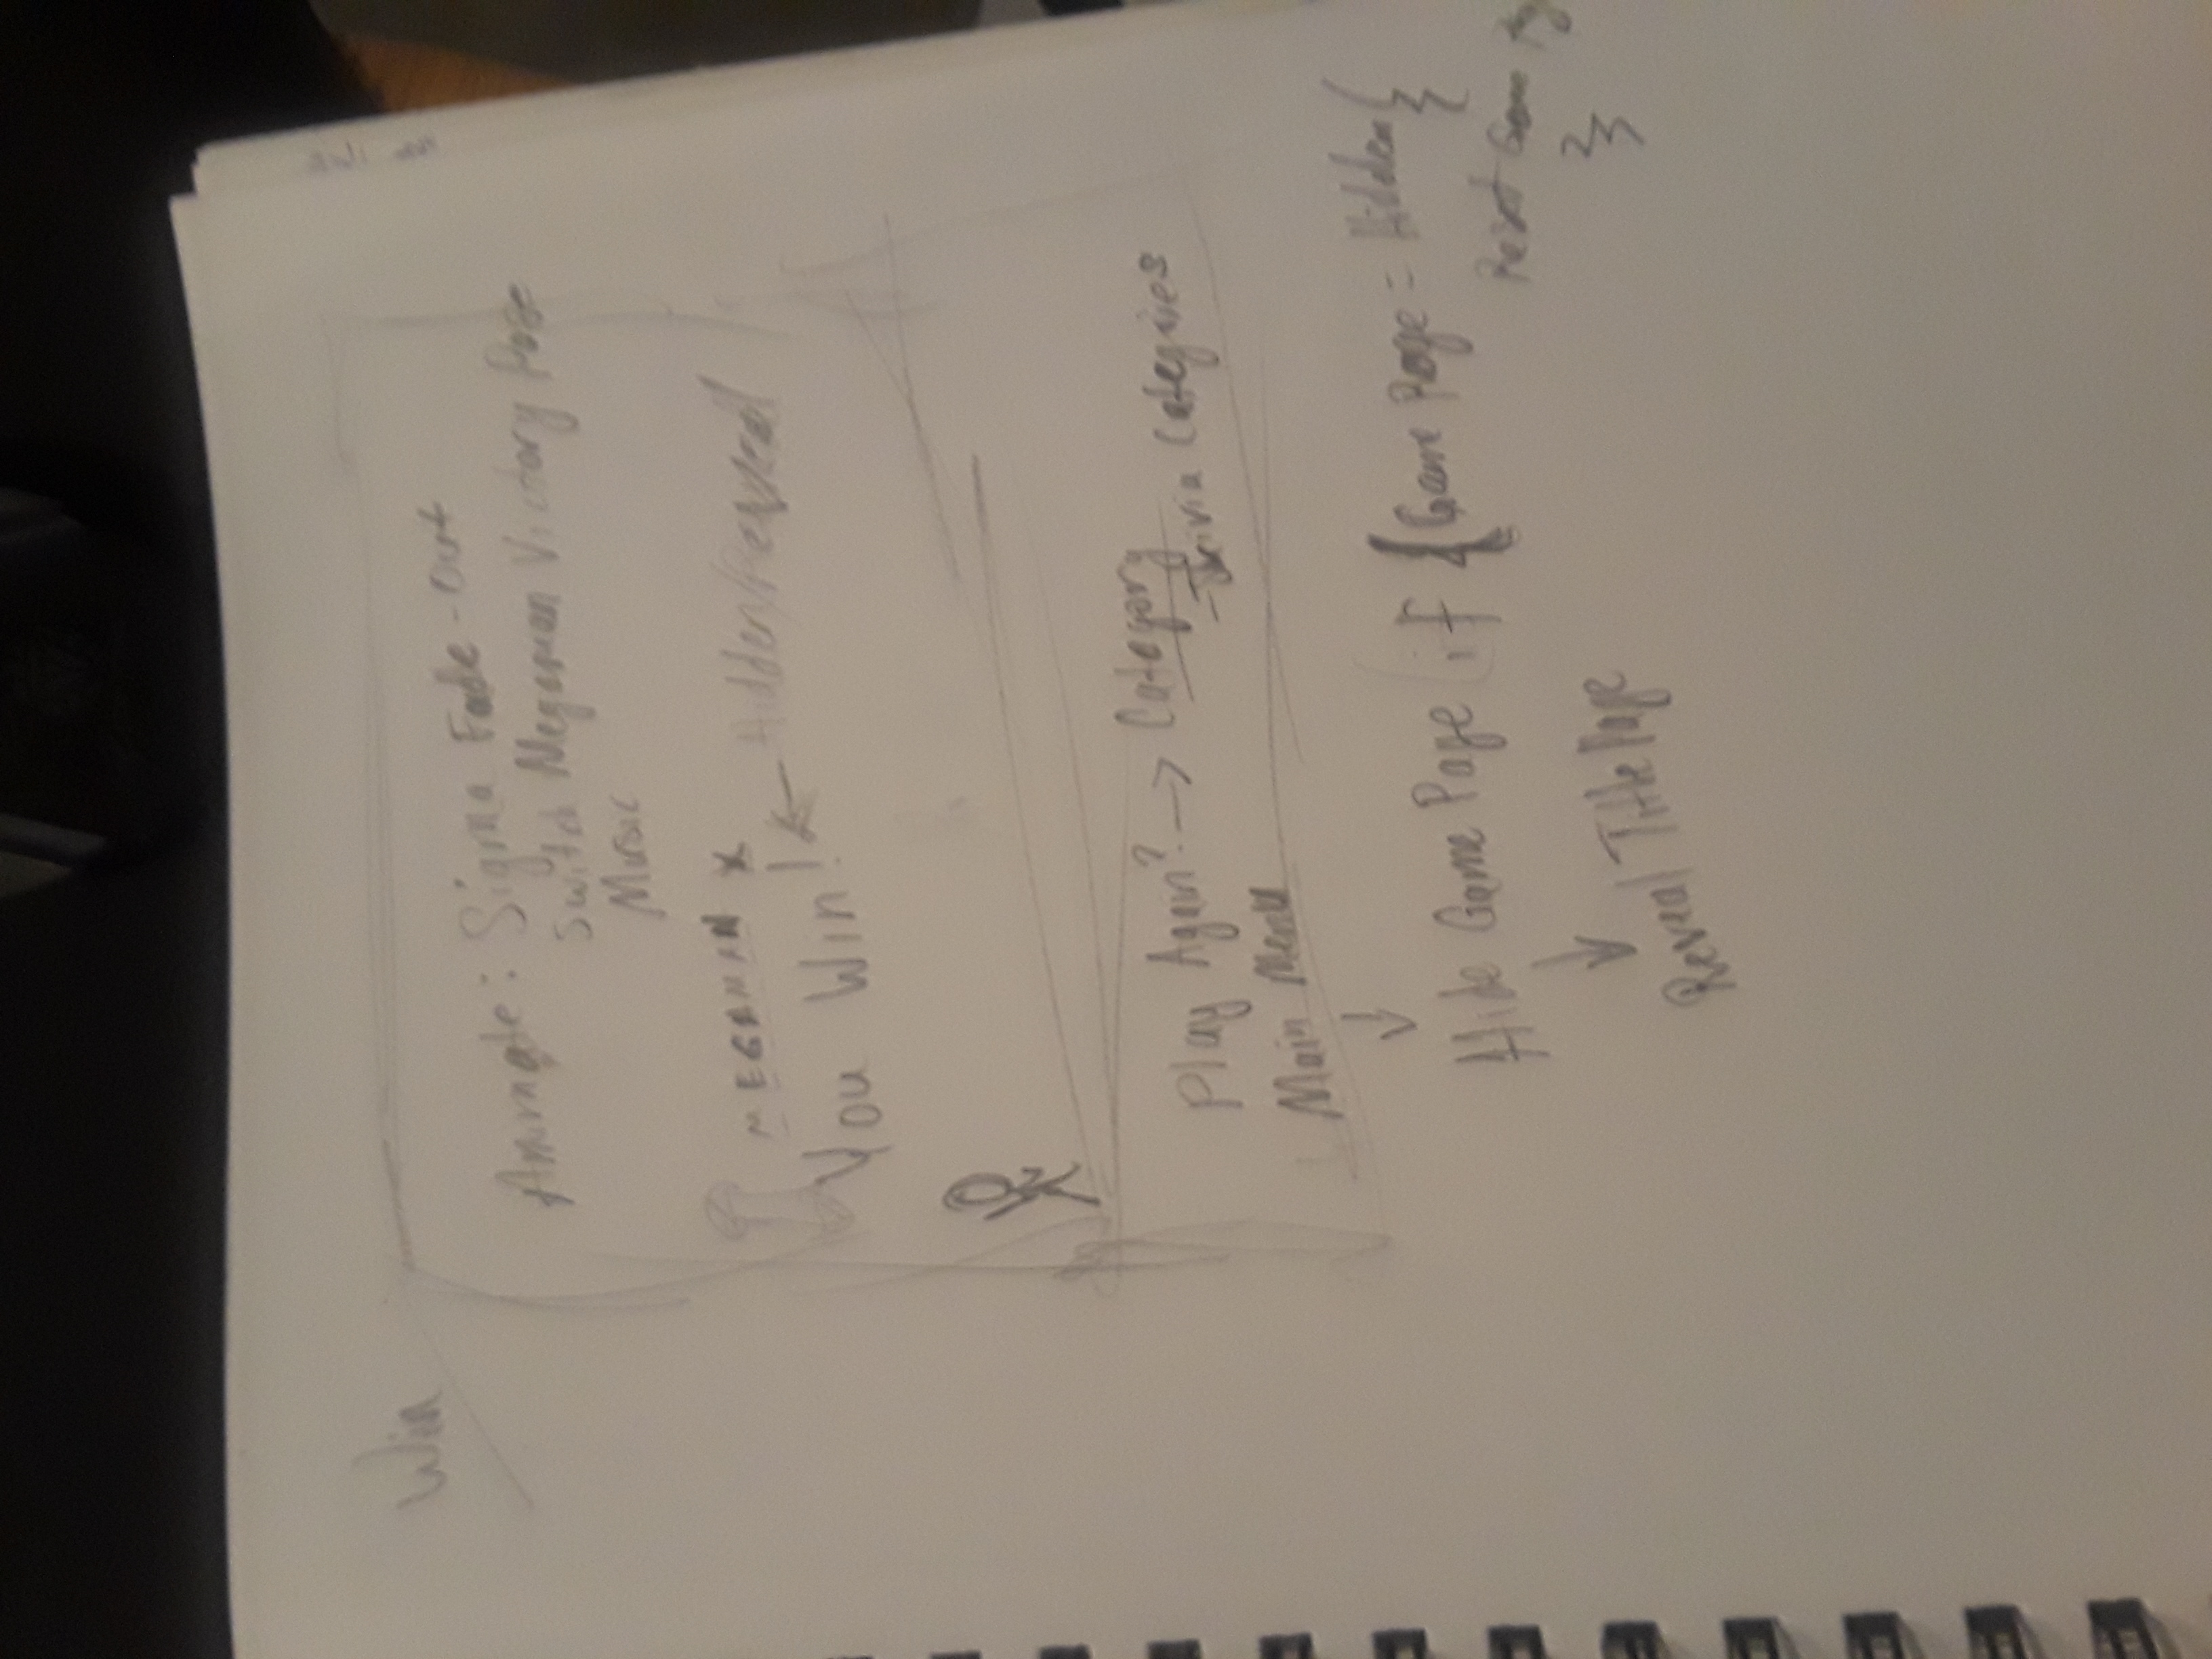 Win
Animate: Sigma Fade-out
Switch Megaman Victory Pose
Music
MEGAMAN X
You Win! ← Hidden/Reveal
Play Again? → Category
- Trivia Categories
Main Menu
↓
Hide Game Page (if {Game Page = Hidden(
}
Reset Game
}
↓
Reveal Title Page